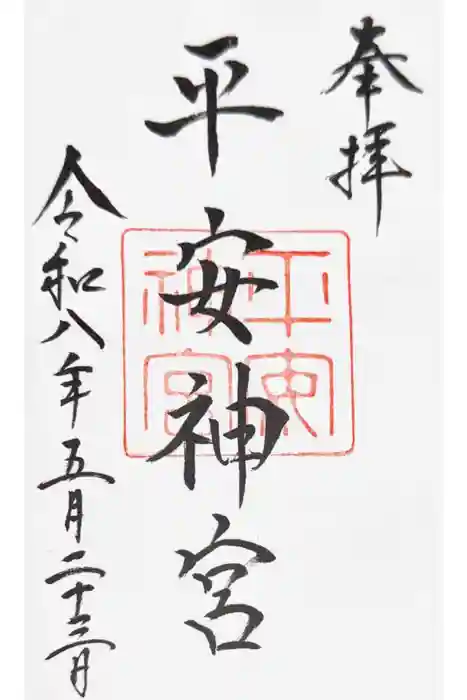 奉拝
平安神宮
平安神宮
令和八年五月二十三日